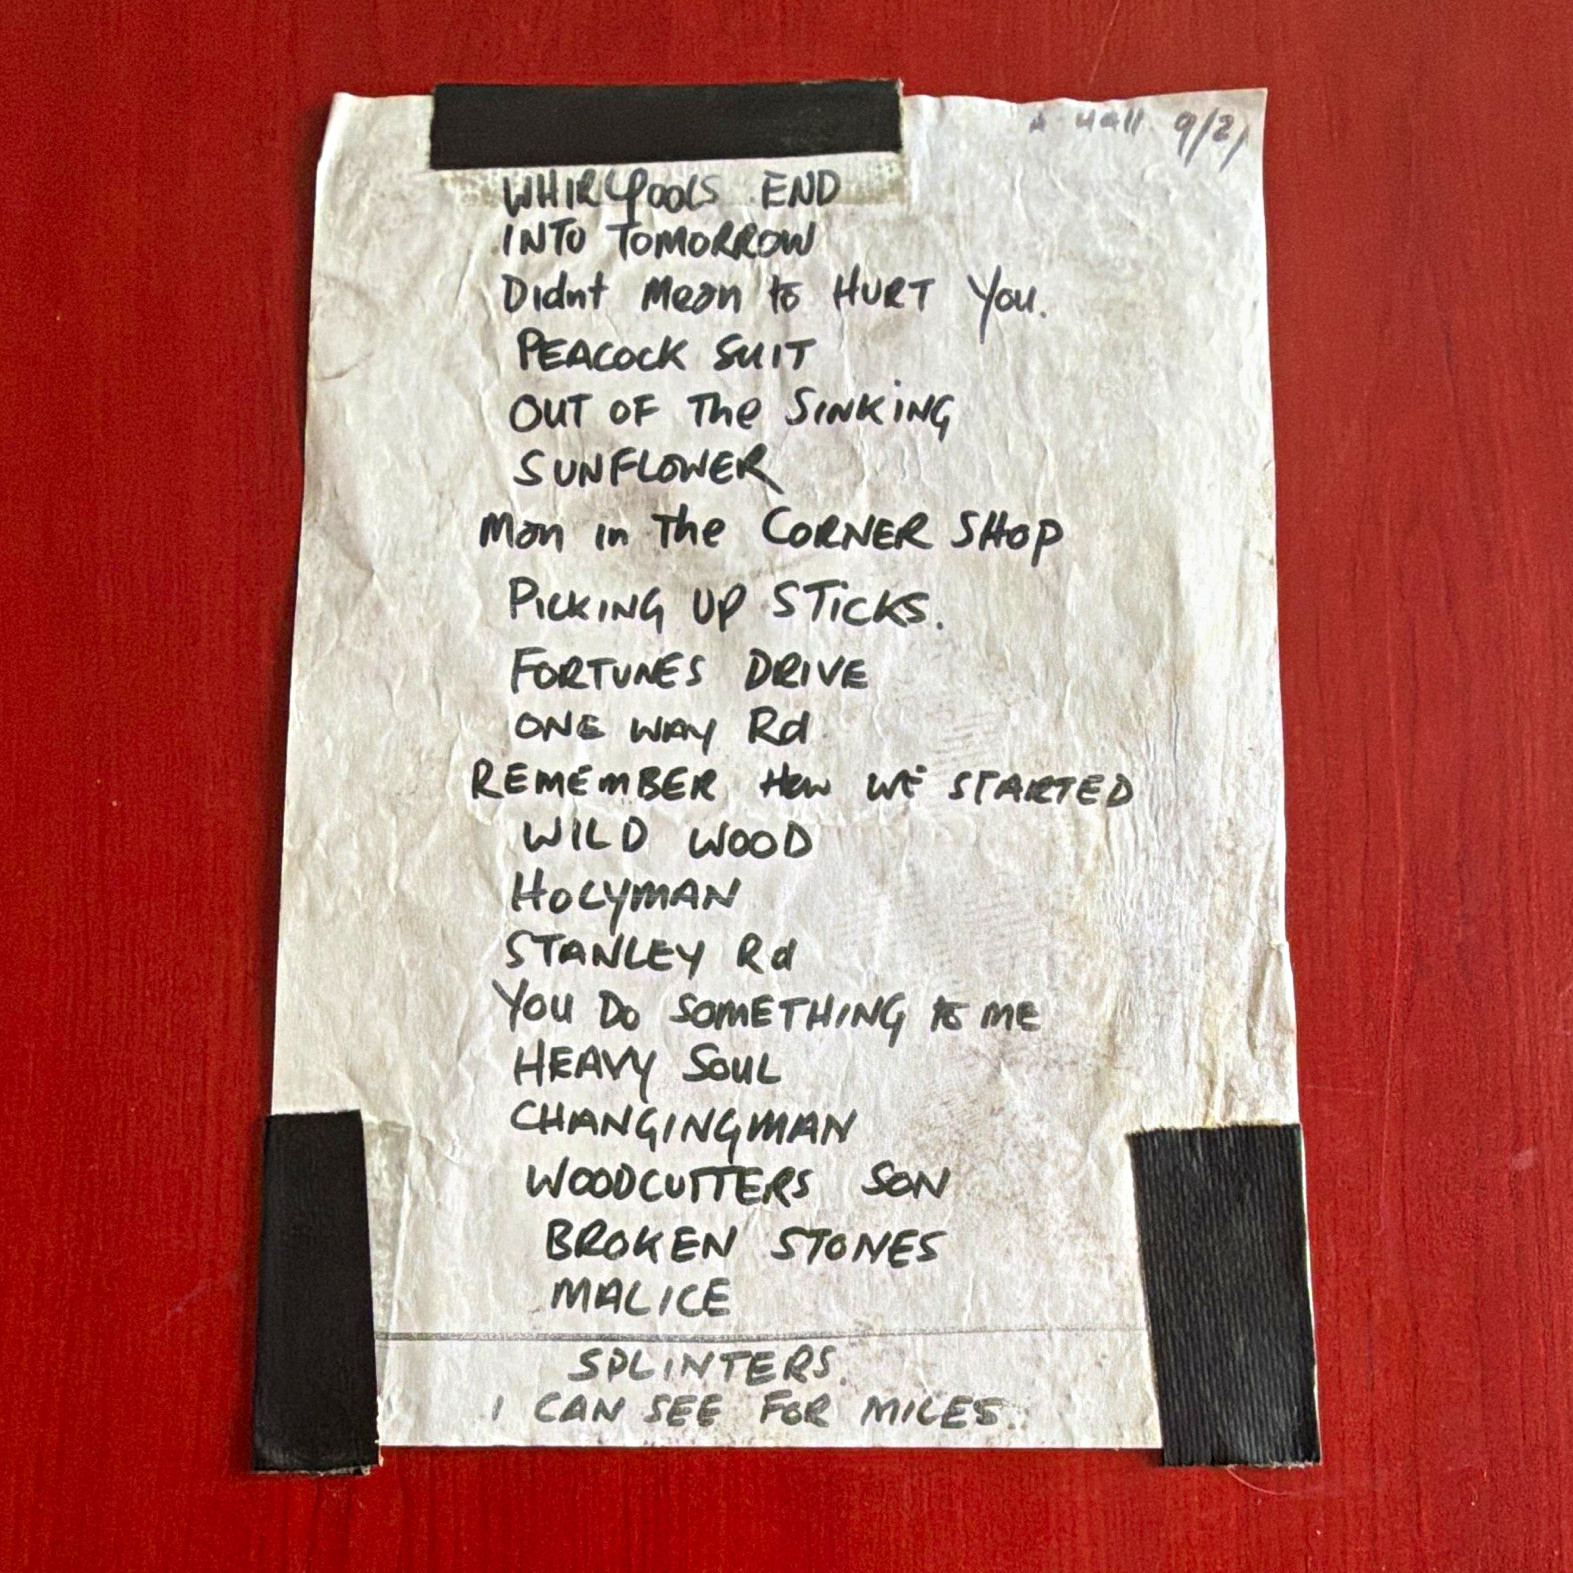 Hall 9/2
WHIRLPOOLS END
INTO TOMORROW
Didnt Mean to HURT You.
PEACOCK SUIT
OUT OF The SINKING
SUNFLOWER
Man in The CORNER SHOP
PICKING UP STICKS.
FORTUNES DRIVE
ONE WAY Rd
REMEMBER How WE STARTED
WILD WOOD
HOLYMAN
STANLEY Rd
You Do SOMETHING to ME
HEAVY SOUL
CHANGINGMAN
WOODCUTTERS SON
BROKEN STONES
MALICE
SPLINTERS.
I CAN SEE FOR MILES.